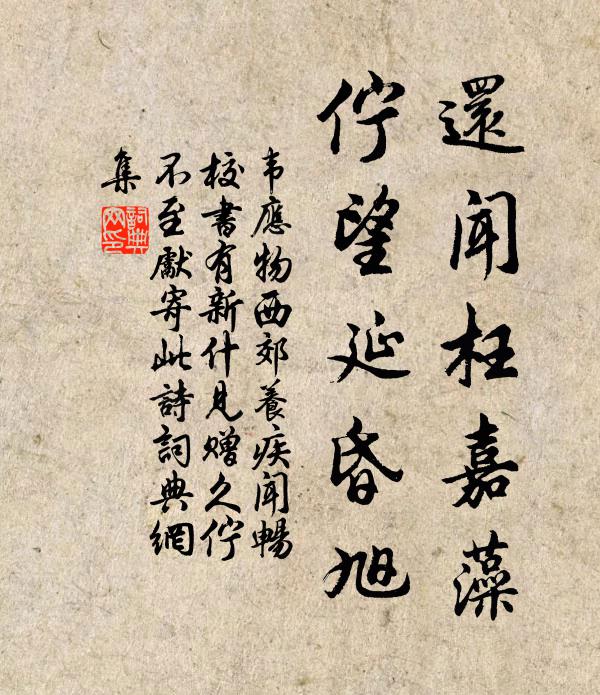 還聞枉嘉藻
佇望延昏旭
韦應物西郊養疾聞暢
校書有新什見贈久佇
不至獻寄此詩詞典網
集
詞典
网印